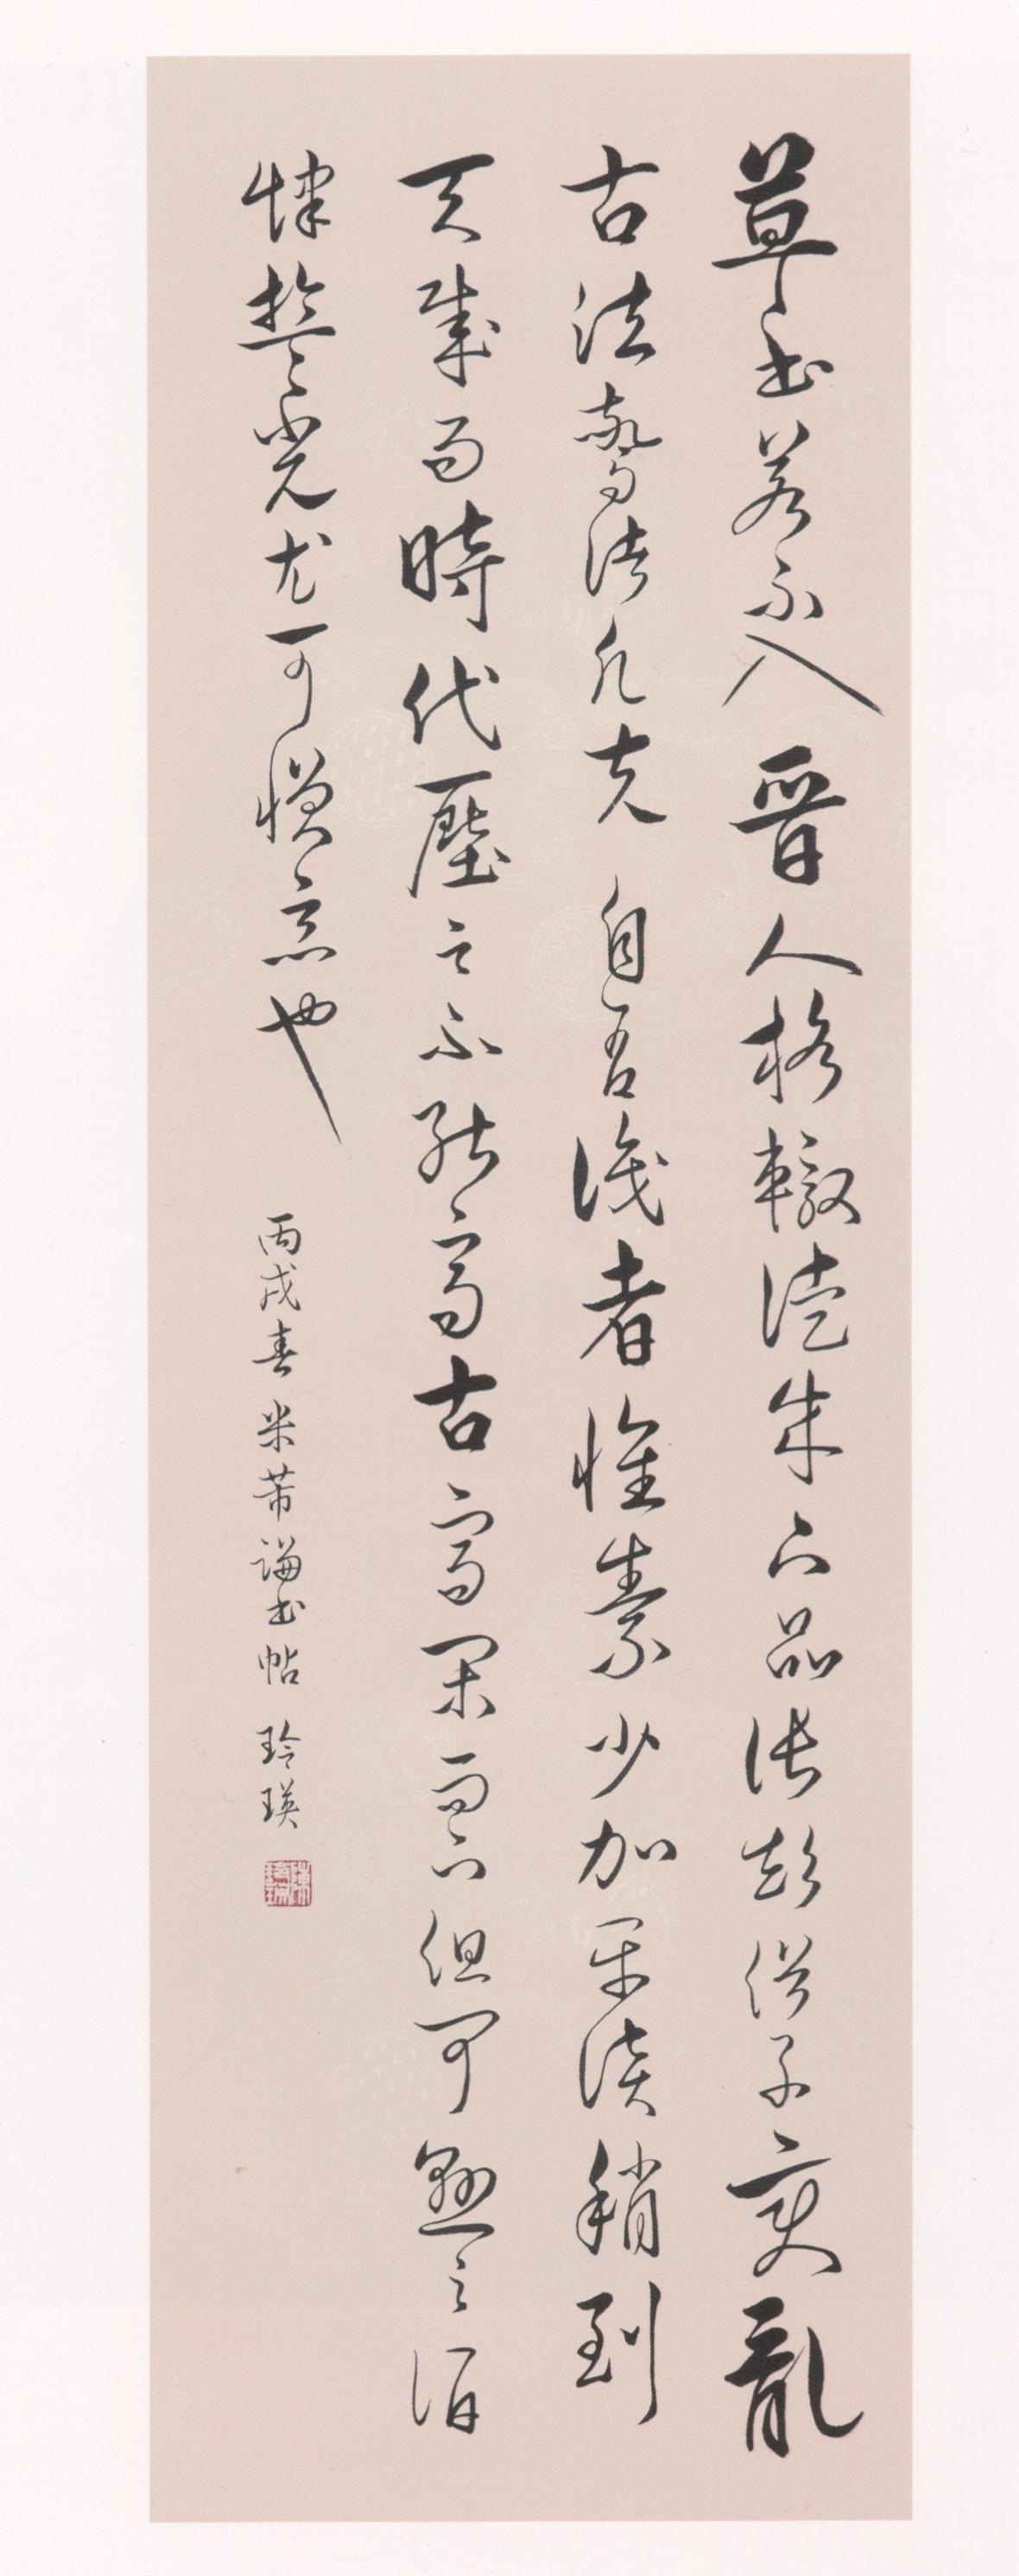 草书若不入晉人格輒徒成下品張顛俗子變亂
古法驚諸凡夫自識者惟素少加平淡稍到
天成而時代壓之不能高古高閑而下但可懸之酒
肆光尤可憎惡也
丙戌春 米芾論书帖 玲瑛